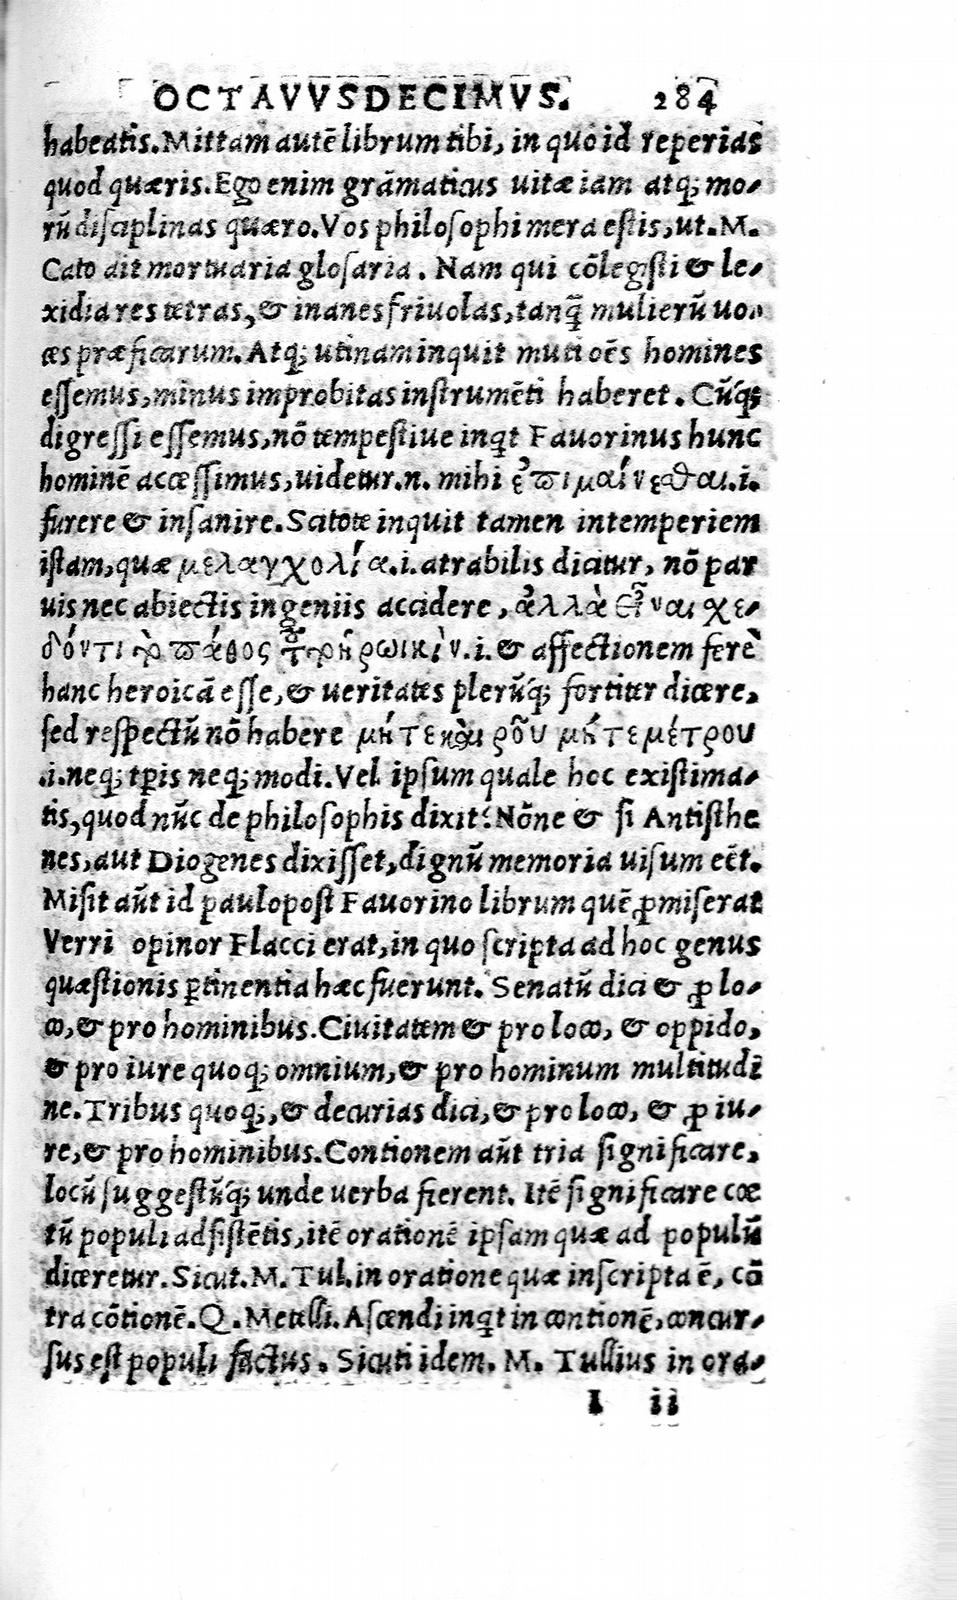 OCTAVVSDECIMVS. 284
habeatis. Mittam autẽ librum tibi, in quo id reperias
quod quæris. Ego enim grãmaticus uitæ iam atq; mo-
rũ disciplinas quæro. Vos philosophi mera estis, ut. M.
Cato ait mortuaria glosaria. Nam qui cõlegisti & le-
xidia res tetras, & inanes friuolas, tanq̃ mulierũ uo-
ces præficarum. Atq; utinam inquit muti oẽs homines
essemus, minus improbitas instrumẽti haberet. Cũq;
digressi essemus, nõ tempestiue inqt Fauorinus hunc
hominẽ accessimus, uidetur. n. mihi ἐπιμαίνεσθαι. i.
furere & insanire. Scitote inquit tamen intemperiem
istam, quæ μελαγχολία. i. atrabilis dicitur, nõ par
uis nec abiectis ingeniis accidere, ἀλλὰ εἶναι χε-
δόν τι τὸ πάθος τῶν ἡρωικῶν. i. & affectionem ferè
hanc heroicã esse, & ueritates plerũq; fortiter dicere,
sed respectũ nõ habere μήτε καιροῦ μήτε μέτρου
.i. neq; tp̃is neq; modi. Vel ipsum quale hoc existima-
tis, quod nũc de philosophis dixit? Nõne & si Antisthe
nes, aut Diogenes dixisset, dignũ memoria uisum eẽt.
Misit aũt id paulopost Fauorino librum quẽ ꝓmiserat
Verri opinor Flacci erat, in quo scripta ad hoc genus
quæstionis ꝑtinentia hæc fuerunt. Senatũ dici & ꝓ lo-
co, & pro hominibus. Ciuitatem & pro loco, & oppido,
& pro iure quoq; omnium, & pro hominum multitudĩ
ne. Tribus quoq;, & decurias dici, & pro loco, & ꝓ iu-
re, & pro hominibus. Contionem aũt tria significare,
locũ suggestũq; unde uerba fierent. Itẽ significare cœ
tũ populi adsistẽtis, itẽ orationẽ ipsam quæ ad populũ
diceretur. Sicut. M. Tul. in oratione quæ inscripta ẽ, cõ
tra cõtionẽ. Q. Metelli. Ascendi inqt in contionẽ, concur-
sus est populi factus. Sicuti idem. M. Tullius in ora-
I ii